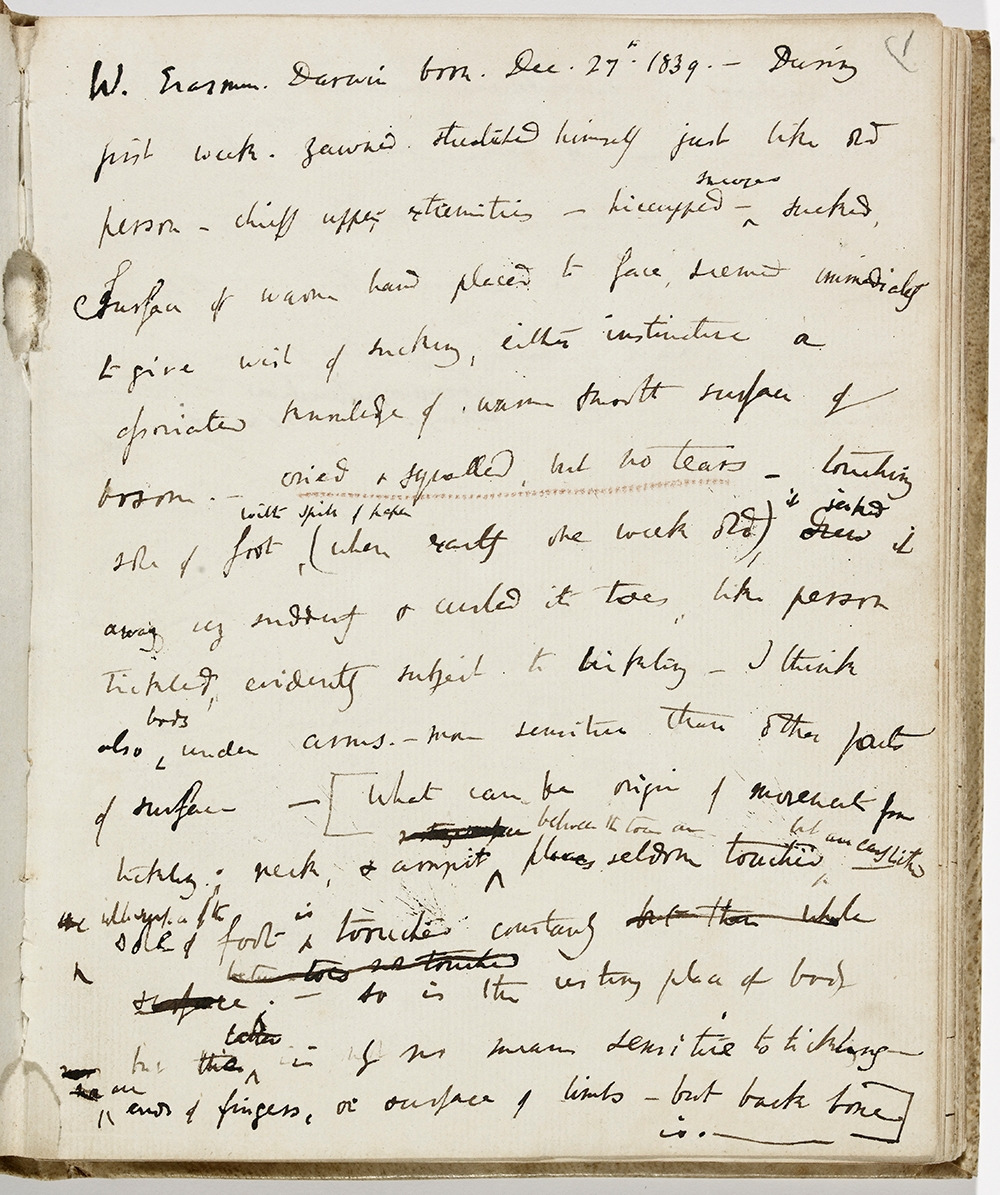 W. Erasmus. Darwin born. Dec. 27th. 1839. — During
first week. yawned. streatched himself just like old
person — chiefly upper extremities — hiccupped — sneezes sucked,
Surface of warm hand placed to face, seemed immediately
to give wish of sucking, either instinctive or
associated knowledge of warm smooth surface of
bosom. — cried & squalled, but no tears — touching
sole of foot with spill of paper, (when exactly one week old), it jerked it
away very suddenly & curled its toes, like person
tickled, evidently subject to tickling — I think
also body under arms. — more sensitive than other parts
of surface — [What can be origin of movement from
tickling: neck, & armpit between the toes are places seldom touched but are easily tickled
sole of foot is touched constantly but the whole
surface. — so is the resting place of body
but the latter is by no means sensitive to tickling —
are ends of fingers, or surface of limbs — but back bone]
is. —